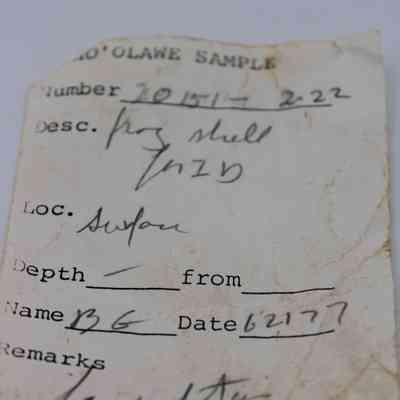 HO'OLAWE SAMPLE
Number 20151- 2.22
Desc. frog shell
for ID
Loc. Surface
Depth — from
Name BG Date 62177
Remarks